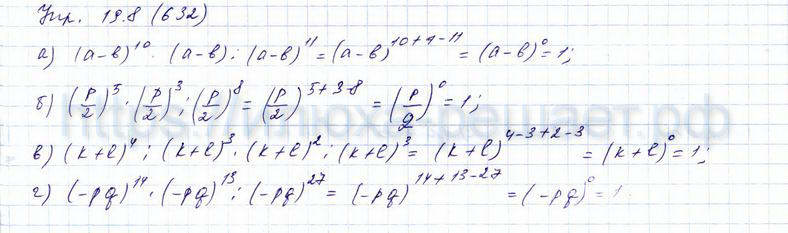 Упр. 19.8 (632)
а) (a-b)¹⁰ · (a-b) : (a-b)¹¹ = (a-b)¹⁰⁺¹⁻¹¹ = (a-b)⁰ = 1;
б) (p/2)⁵ · (p/2)³ : (p/2)⁸ = (p/2)⁵⁺³⁻⁸ = (p/2)⁰ = 1;
в) (k+l)⁴ : (k+l)³ · (k+l)² : (k+l)³ = (k+l)⁴⁻³⁺²⁻³ = (k+l)⁰ = 1;
г) (-pq)¹⁴ · (-pq)¹³ : (-pq)²⁷ = (-pq)¹⁴⁺¹³⁻²⁷ = (-pq)⁰ = 1